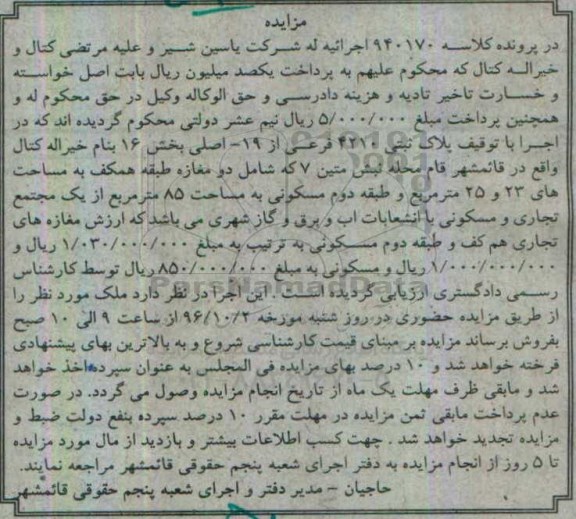 مزایده
در پرونده کلاسه ۹۴۰۱۷۰ اجرائیه له شرکت یاسین شیر و علیه مرتضی کتال و
خیراله کتال که محکوم علیهم به پرداخت یکصد میلیون ریال بابت اصل خواسته
و خسارت تاخیر تادیه و هزینه دادرسی و حق الوکاله وکیل در حق محکوم له و
همچنین پرداخت مبلغ ۵/۰۰۰/۰۰۰ ریال نیم عشر دولتی محکوم گردیده اند که در
اجرا با توقیف پلاک ثبتی ۴۲۱۰ فرعی از ۱۹- اصلی بخش ۱۶ بنام خیراله کتال
واقع در قائمشهر قام محله نبش متین ۷ که شامل دو مغازه طبقه همکف به مساحت
های ۲۳ و ۲۵ مترمربع و طبقه دوم مسکونی به مساحت ۸۵ مترمربع از یک مجتمع
تجاری و مسکونی با انشعابات اب و برق و گاز شهری می باشد که ارزش مغازه های
تجاری هم کف و طبقه دوم مسکونی به ترتیب به مبلغ ۱/۰۳۰/۰۰۰/۰۰۰ ریال و
۱/۰۰۰/۰۰۰/۰۰۰ ریال و مسکونی به مبلغ ۸۵۰/۰۰۰/۰۰۰ ریال توسط کارشناس
رسمی دادگستری ارزیابی گردیده است . این اجرا در نظر دارد ملک مورد نظر را
از طریق مزایده حضوری در روز شنبه مورخه ۹۶/۱۰/۲ از ساعت ۹ الی ۱۰ صبح
بفروش برساند مزایده بر مبنای قیمت کارشناسی شروع و به بالاترین بهای پیشنهادی
فرخته خواهد شد و ۱۰ درصد بهای مزایده فی المجلس به عنوان سپرده اخذ خواهد
شد و مابقی ظرف مهلت یک ماه از تاریخ انجام مزایده وصول می گردد. در صورت
عدم پرداخت مابقی ثمن مزایده در مهلت مقرر ۱۰ درصد سپرده بنفع دولت ضبط و
مزایده تجدید خواهد شد . جهت کسب اطلاعات بیشتر و بازدید از مال مورد مزایده
تا ۵ روز از انجام مزایده به دفتر اجرای شعبه پنجم حقوقی قائمشهر مراجعه نمایند.
حاجیان – مدیر دفتر و اجرای شعبه پنجم حقوقی قائمشهر
ParsNamadData